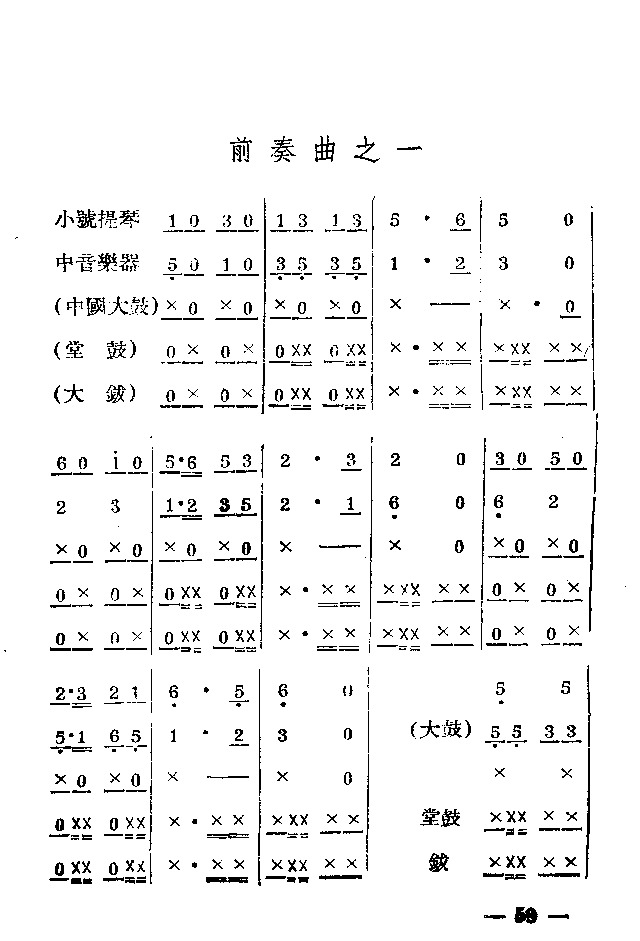 前奏曲之一
小號提琴 1 0 3 0 | 1 3 1 3 | 5 · 6 | 5 0
中音樂器 5 0 1 0 | 3 5 3 5 | 1 · 2 | 3 0
(中國大鼓) × 0 × 0 | × 0 × 0 | × — | × · 0
(堂 鼓) 0 × 0 × | 0 ×× 0 ×× | × · × × | × ×× × ×
(大 鈸) 0 × 0 × | 0 ×× 0 ×× | × · × × | × ×× × ×
6 0 i 0 | 5 · 6 5 3 | 2 · 3 | 2 0 | 3 0 5 0
2 3 | 1 · 2 3 5 | 2 · 1 | 6 0 | 6 2
× 0 × 0 | × 0 × 0 | × — | × 0 | × 0 × 0
0 × 0 × | 0 ×× 0 ×× | × · × × | × ×× × × | 0 × 0 ×
0 × 0 × | 0 ×× 0 ×× | × · × × | × ×× × × | 0 × 0 ×
2 · 3 2 1 | 6 · 5 | 6 0 | 5 5
5 · 1 6 5 | 1 · 2 | 3 0 | (大鼓) 5 5 3 3
× 0 × 0 | × — | × 0 | × ×
0 ×× 0 ×× | × · × × | × ×× × × | 堂鼓 × ×× × ×
0 ×× 0 ×× | × · × × | × ×× × × | 鈸 × ×× × ×
— 59 —